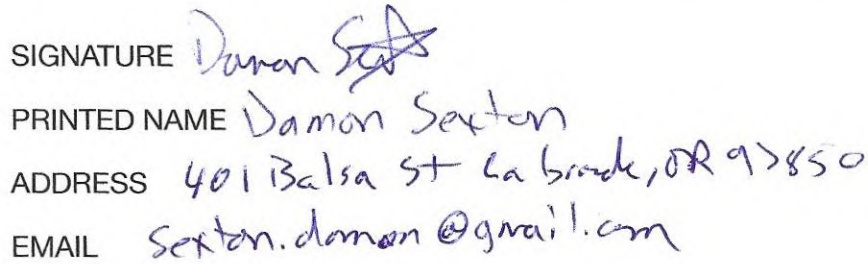 SIGNATURE Damon Sexton
PRINTED NAME Damon Sexton
ADDRESS 401 Balsa St La Grande, OR 97850
EMAIL Sexton.damon@gmail.com